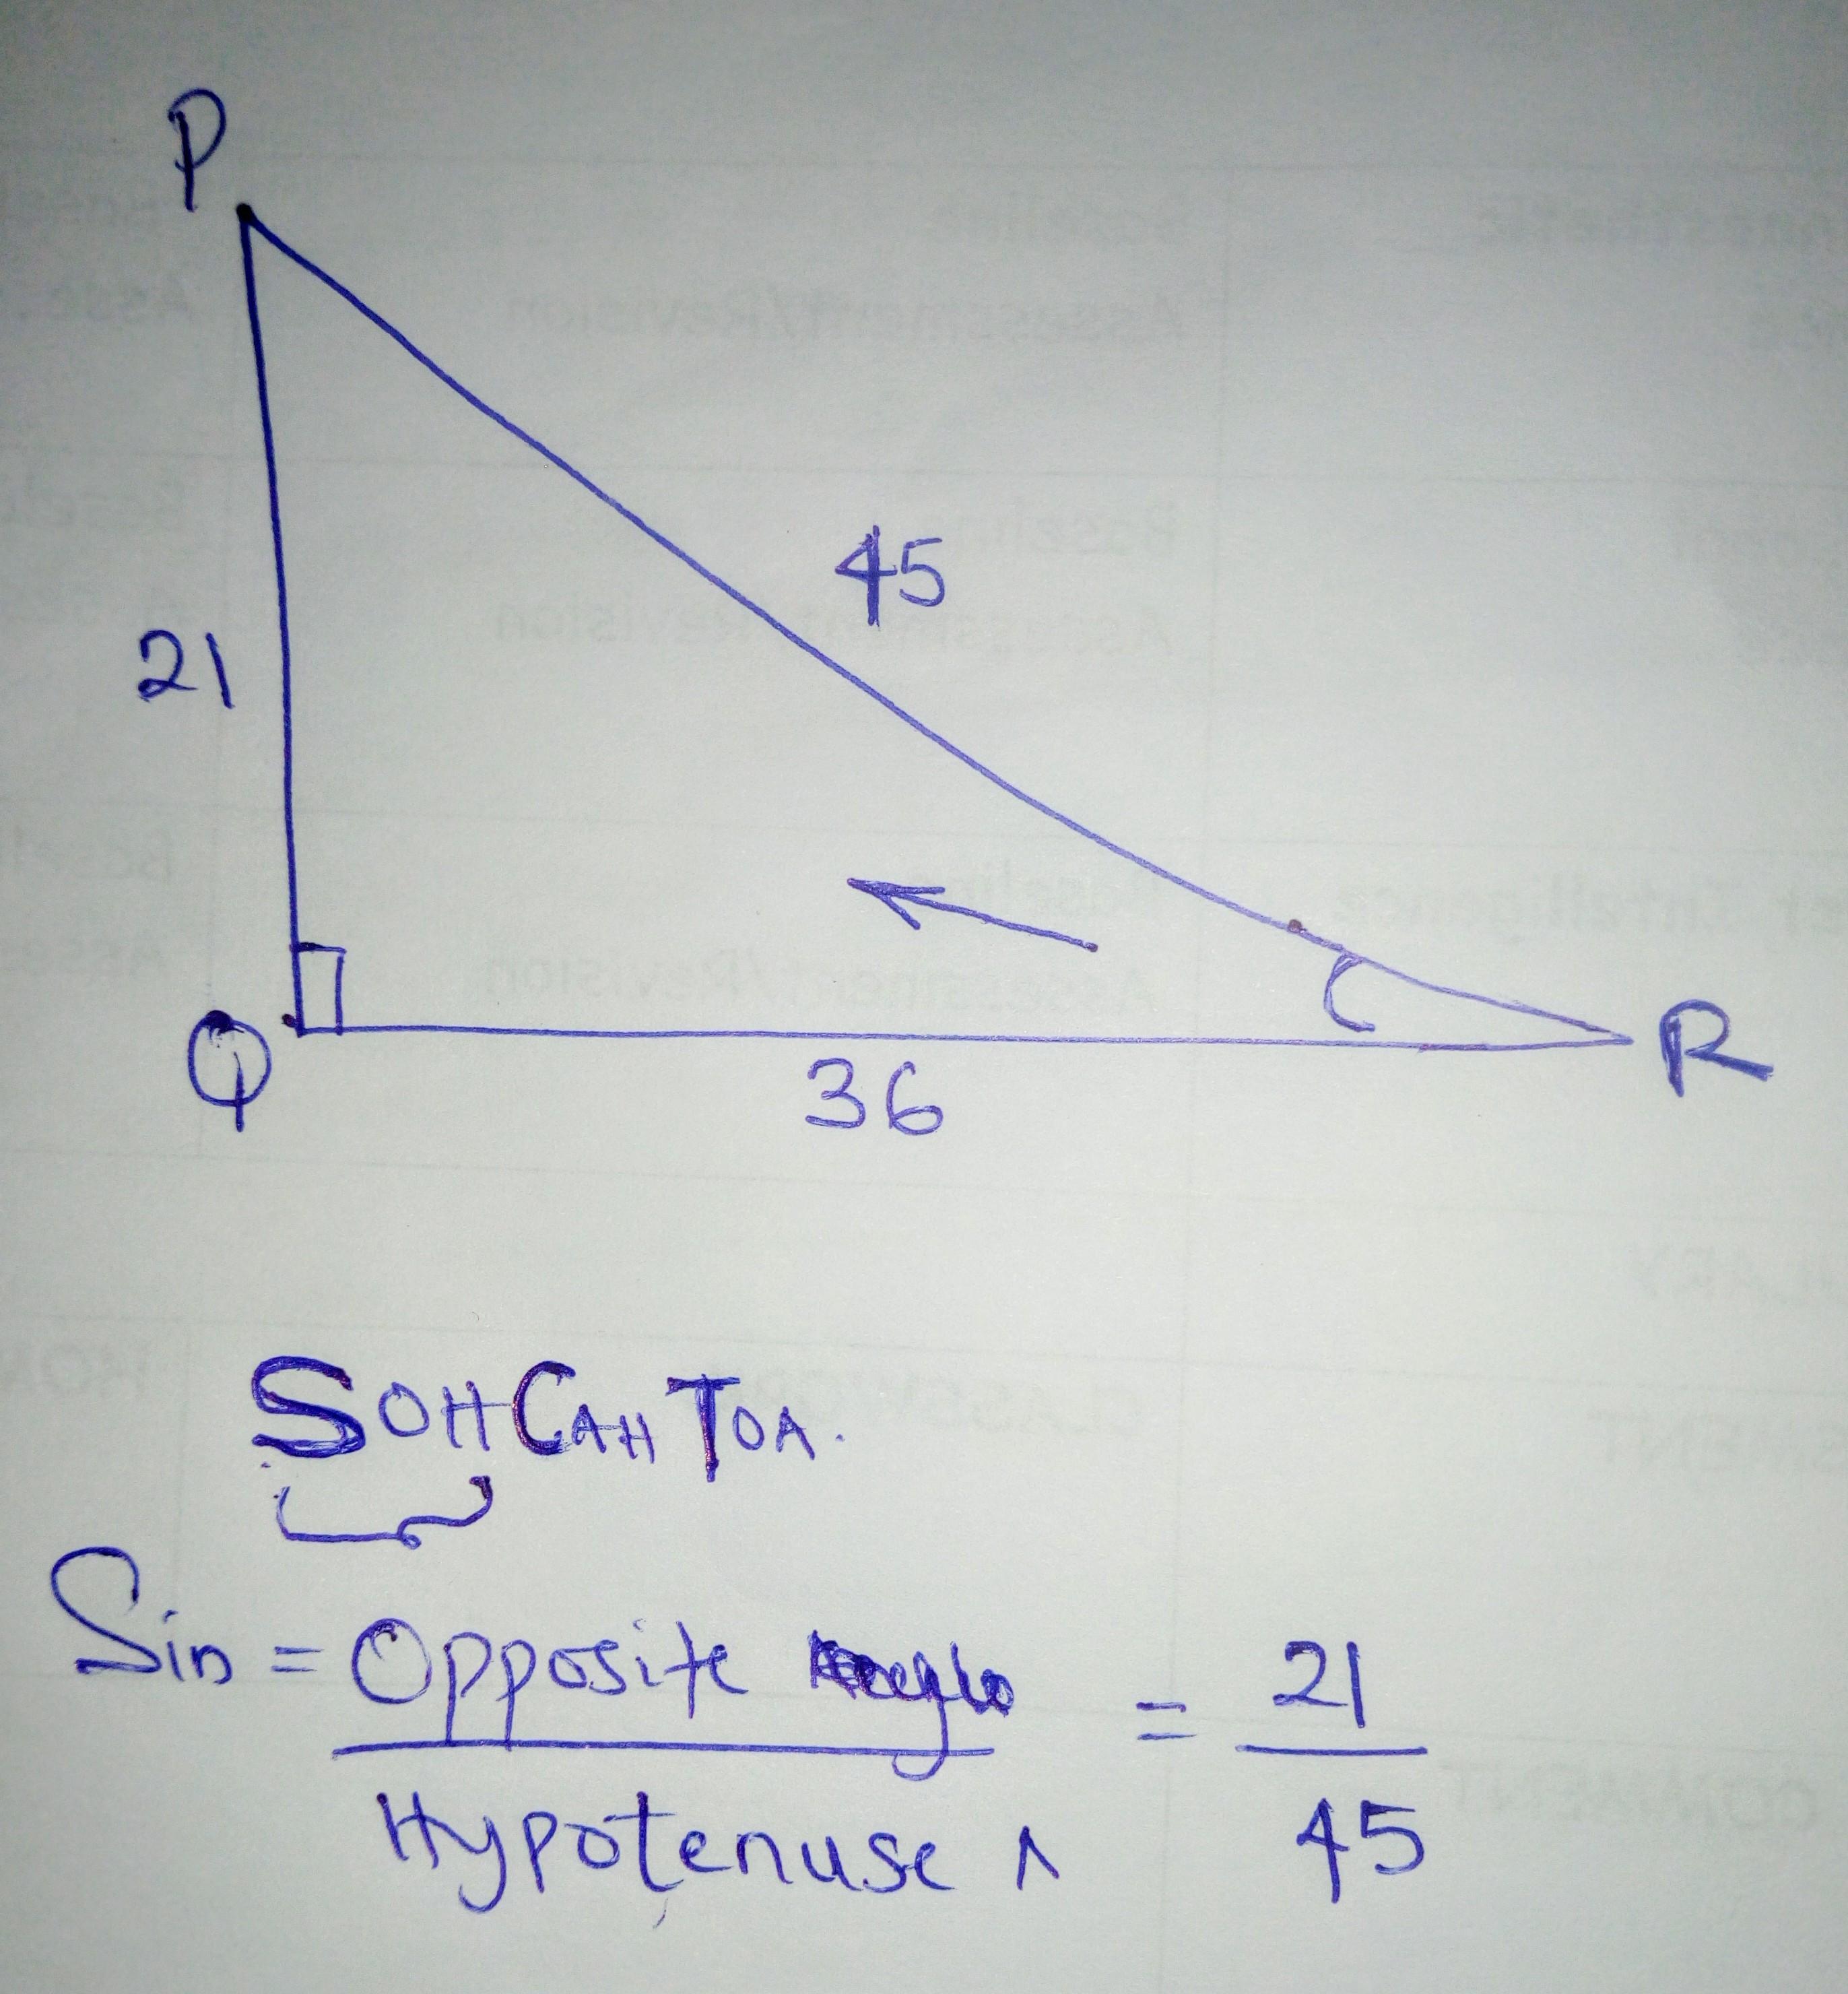 P
45
21
Q
36
R
SOHCAHTOA.
Sin = Opposite = 21
Hypotenuse 45